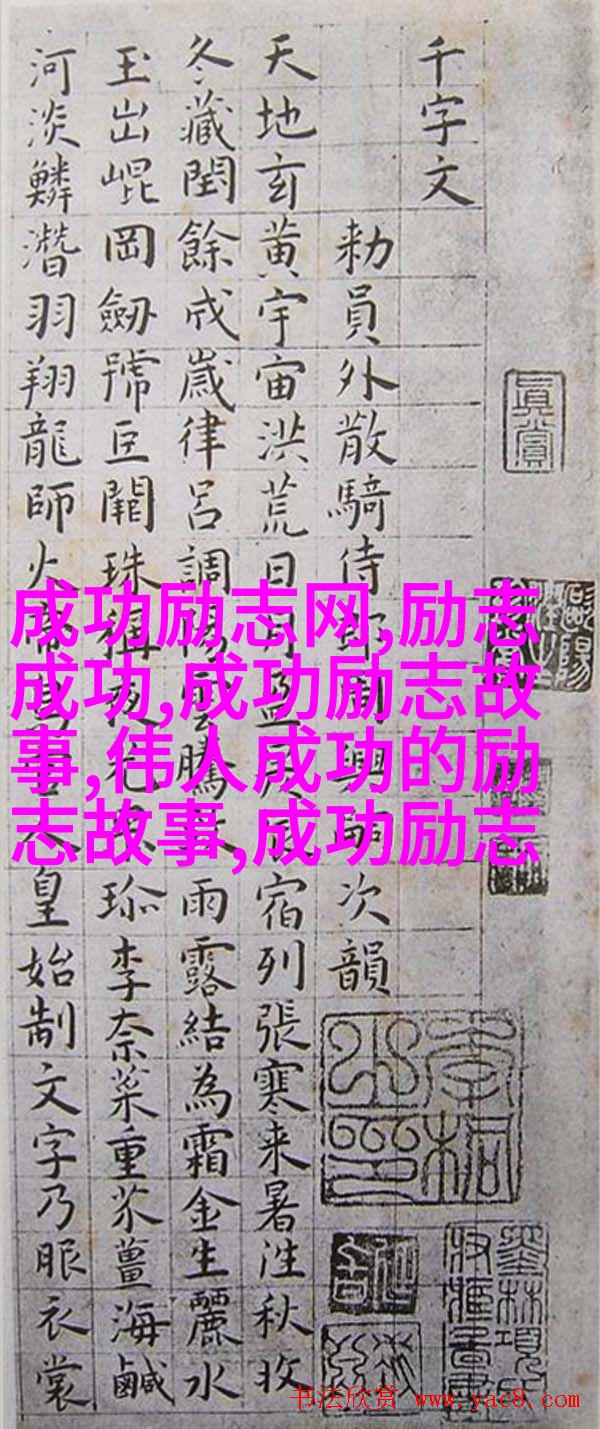 千字文
勑員外散騎侍郎周興嗣次韻
天地玄黃宇宙洪荒日月盈昃辰宿列張寒来暑往秋收
冬藏閏餘成歲律呂調陽雲騰致雨露結為霜金生麗水
玉出崐岡劒號巨闕珠稱夜光果珎李柰菜重芥薑海鹹
河淡鱗潛羽翔龍師火帝鳥官人皇始制文字乃服衣裳
真賞
成功励志网,励志
成功,成功励志故
事,伟人成功的励
志故事,成功励志
书法欣赏 www.yac8.com